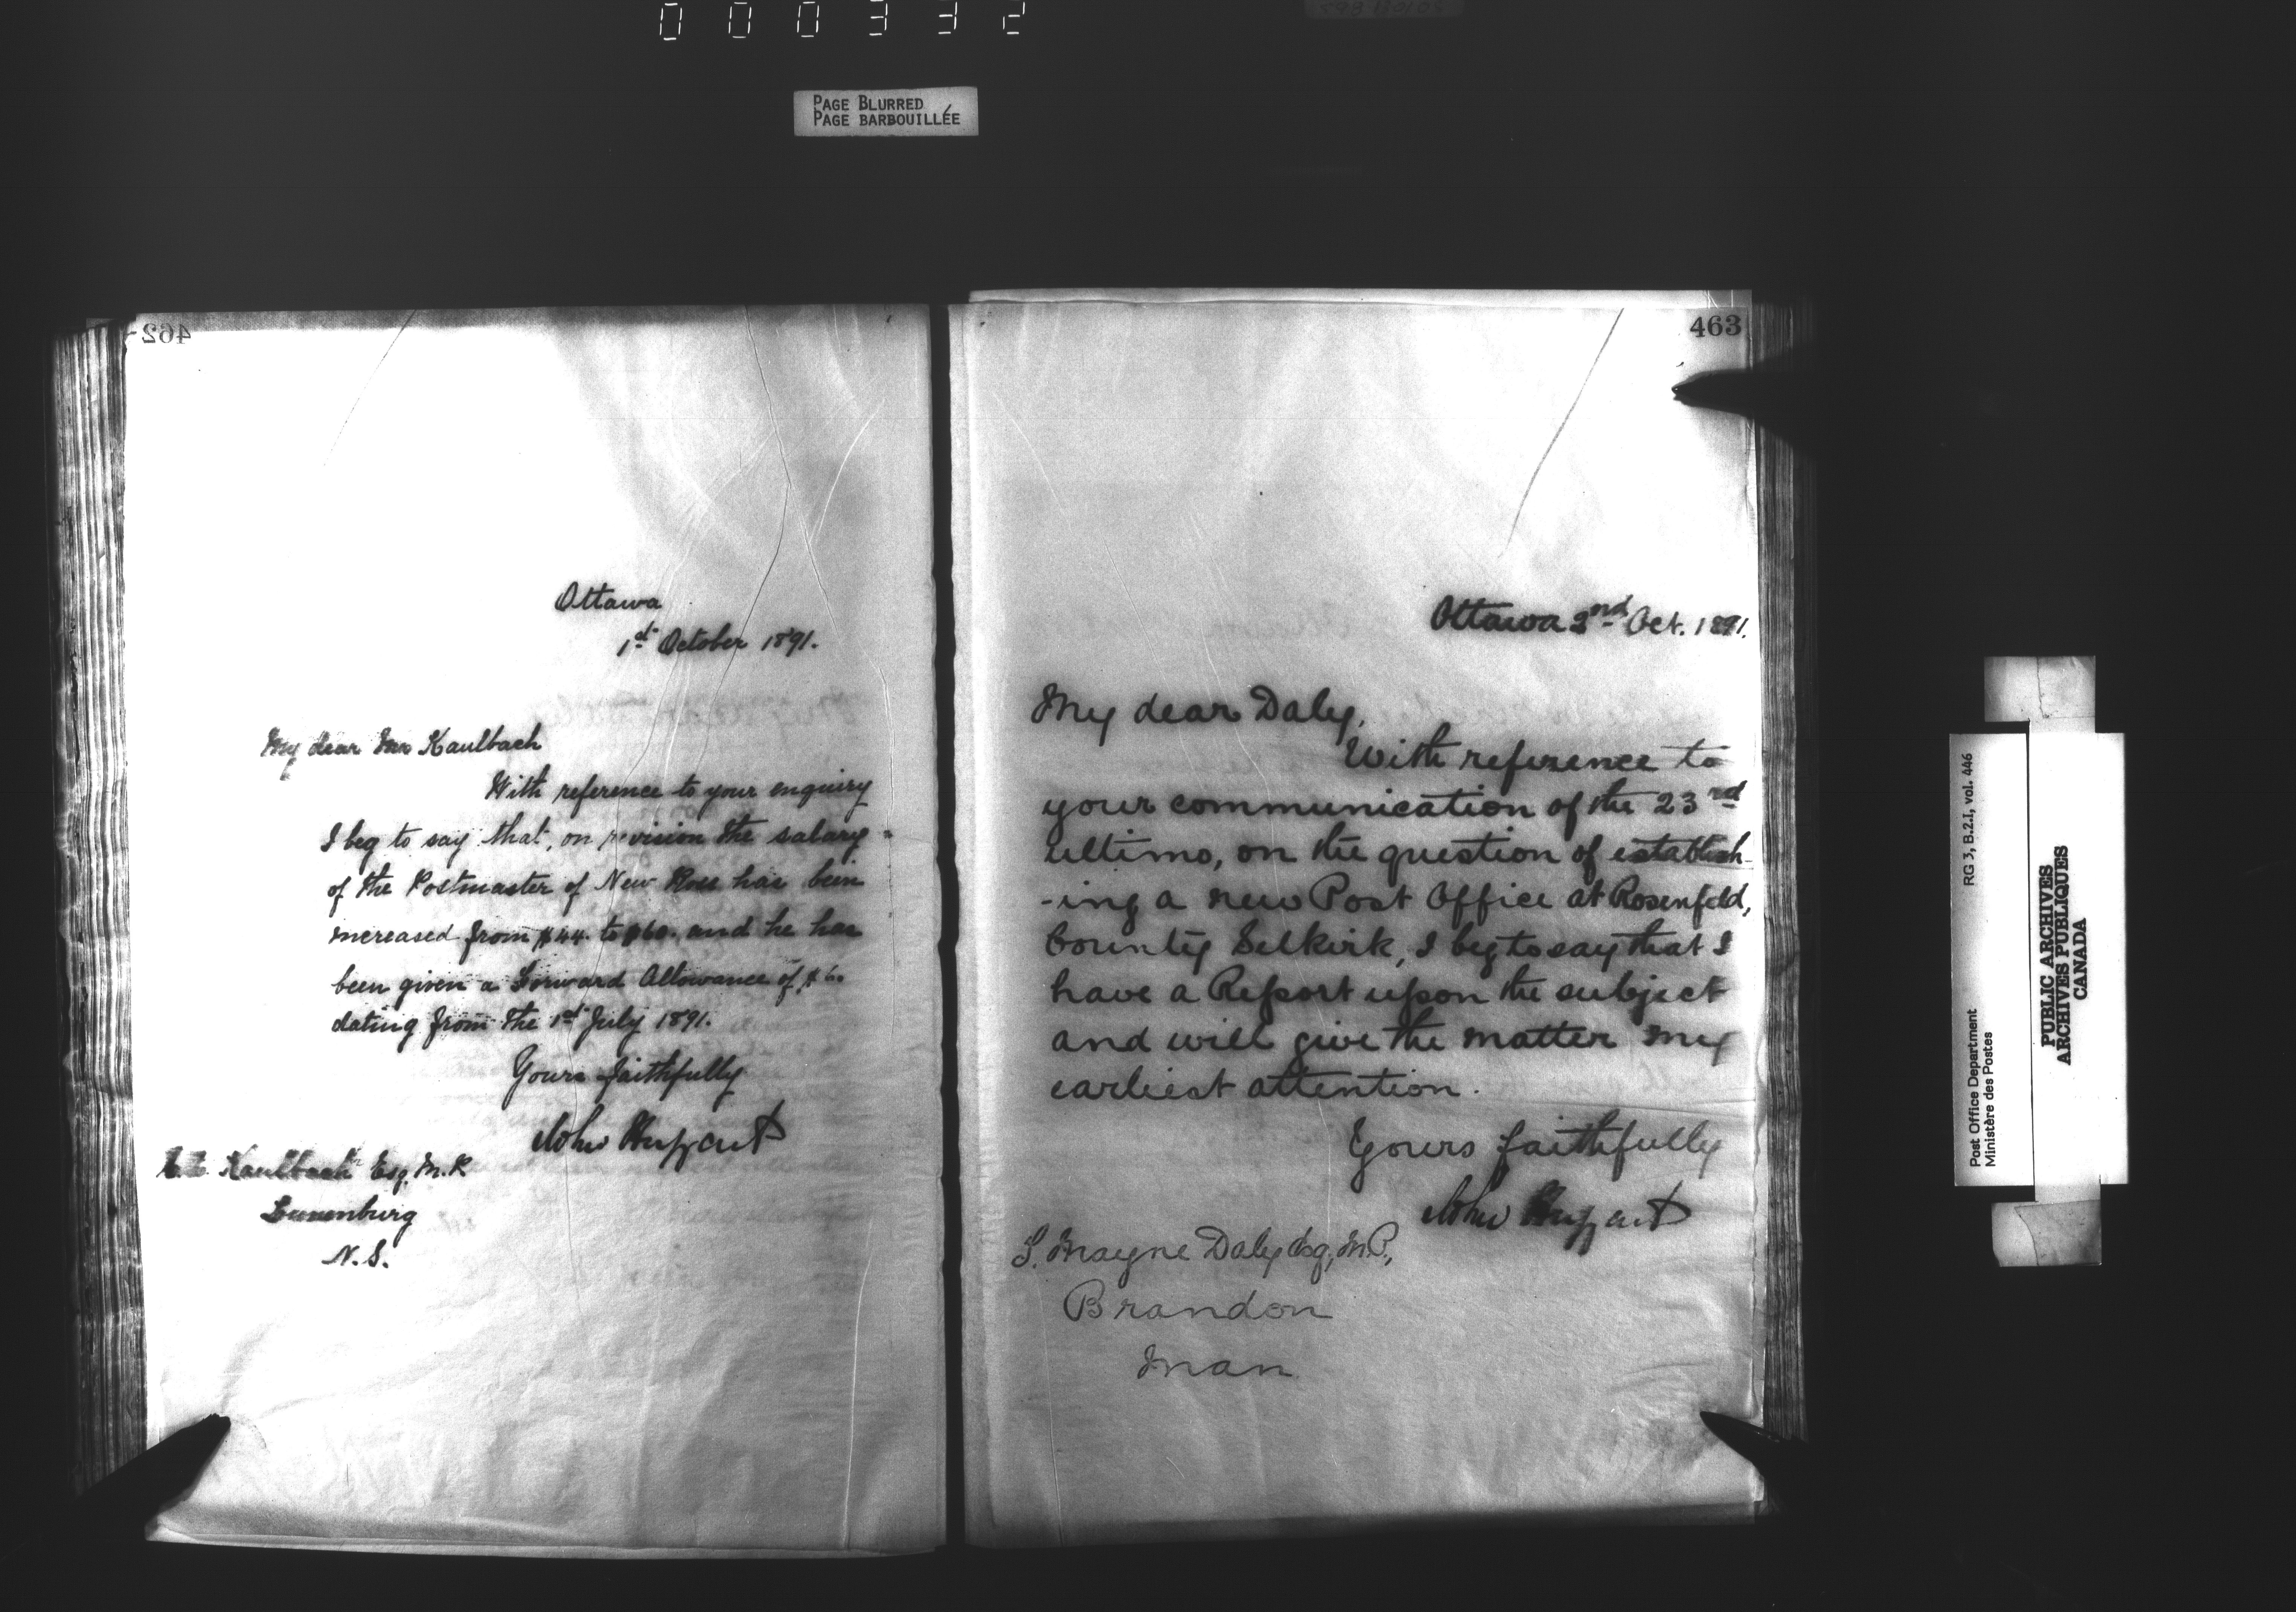 000332
PAGE BLURRED
PAGE BARBOUILLÉE
462
Ottawa
1st October 1891.
My dear Mr Kaulbach
With reference to your enquiry
I beg to say that, on revision the salary
of the Postmaster of New Ross has been
increased from $44. to $60. and he has
been given a Forward Allowance of $6.
dating from the 1st July 1891.
Yours faithfully
John Haggart
Kaulbach Esq. M.P.
Lunenburg
N.S.
463
Ottawa 2nd Oct. 1891.
My dear Daly,
With reference to
your communication of the 23rd
ultimo, on the question of establish-
-ing a new Post Office at Rosenfeld,
County Selkirk, I beg to say that I
have a Report upon the subject
and will give the matter my
earliest attention.
Yours faithfully
John Haggart
T. Mayne Daly Esq, M.P.,
Brandon
Man
RG 3, B.2.I, vol. 446
Post Office Department
Ministère des Postes
PUBLIC ARCHIVES
ARCHIVES PUBLIQUES
CANADA